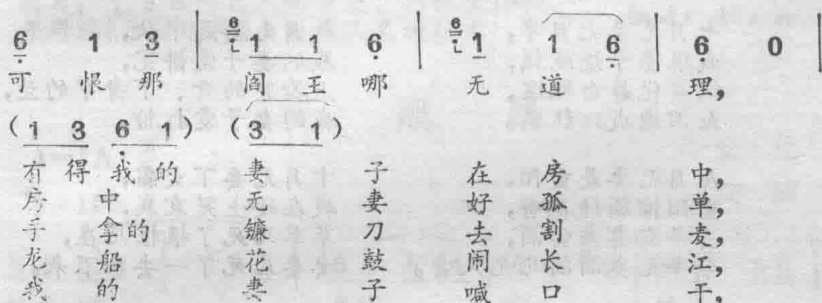 6 1 3 | 6 1 1 6 | 6 1 1 6 | 6 0 |
可 恨 那 阎 王 哪 无 道 理，
(1 3 6 1) (3 1)
有 得 我 的 妻 子 在 房 中，
房 中 无 妻 好 孤 单，
手 拿 的 镰 刀 去 割 麦，
龙 船 花 鼓 闹 长 江，
我 的 妻 子 喊 口 干，